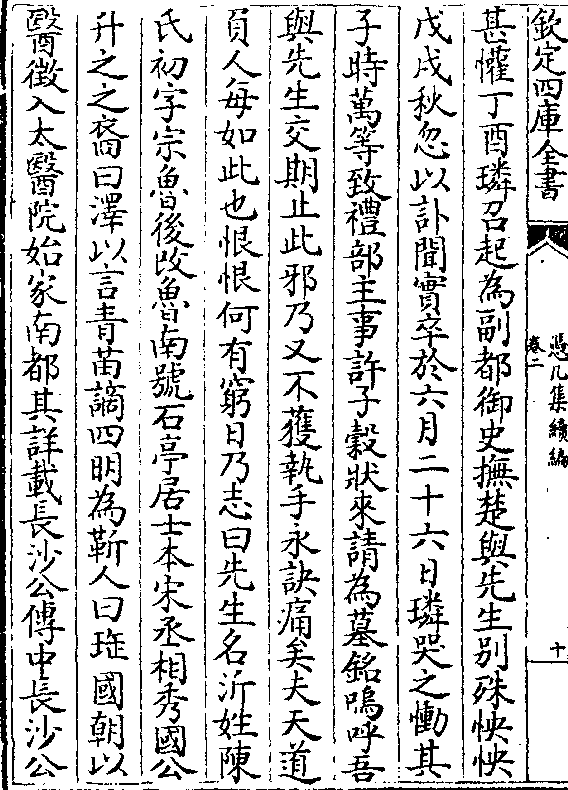 欽定四庫全書
憑几集續編
卷二
十
甚懽丁酉璘召起為副都御史撫楚與先生别殊怏怏
戊戌秋忽以訃聞實卒於六月二十六日璘哭之慟其
子時萬等致禮部主事許子穀狀來請為墓銘嗚呼吾
與先生交期止此邪乃又不獲執手永訣痛矣夫天道
負人每如此也恨恨何有窮日乃志曰先生名沂姓陳
氏初字宗魯後改魯南號石亭居士本宋丞相秀國公
升之之裔曰澤以言青苗謫四明為靳人曰珽國朝以
醫徵入太醫院始家南都其詳載長沙公傳中長沙公